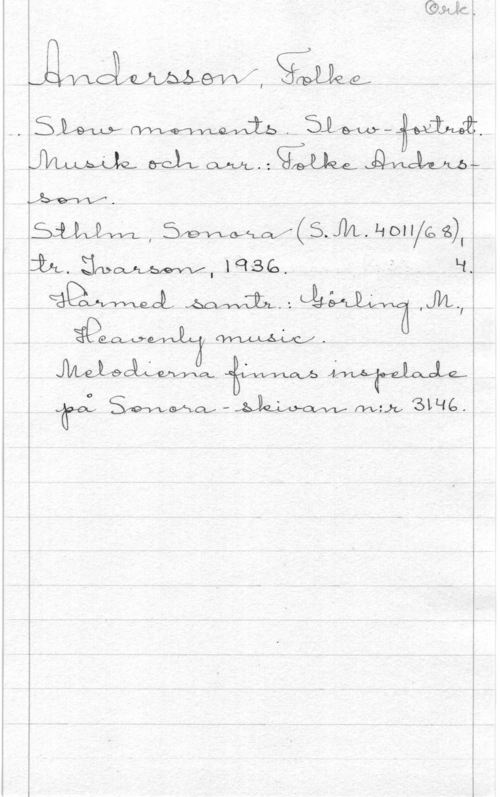 Ork.
Andersson, Folke
Slow moments. Slow-foxtrot.
Musik och arr.: Folke Anders-
son.
Sthlm, Sonora (S. M. 4011/68),
tr. Ivarson, 1936. 4.
Härmed samtr.: Görling, M.,
Heavenly music.
Melodierna finnas inspelade
på Sonora-skivan n:r 3146.